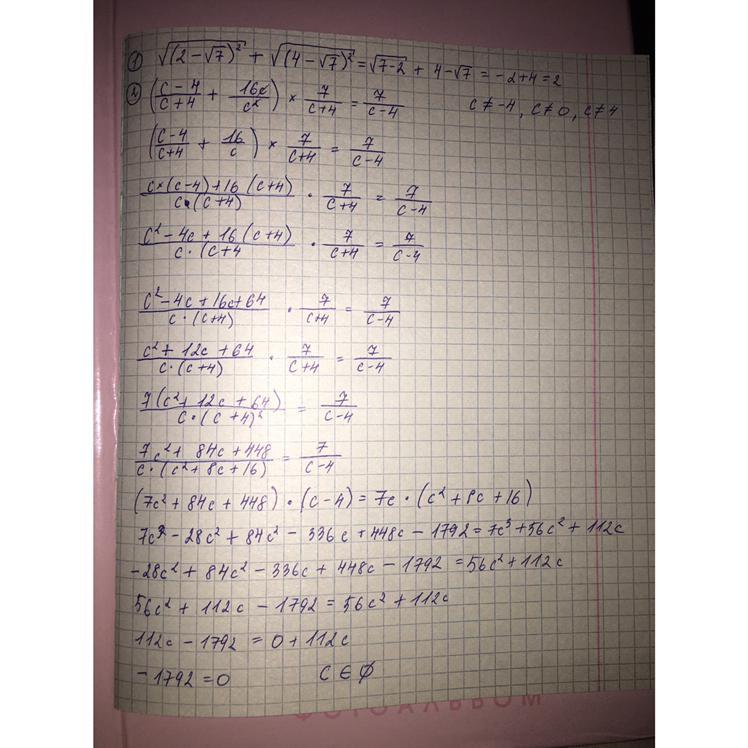 ① √(2-√7)² + √(4-√7)² = √7-2 + 4-√7 = -2+4 = 2
② (c-4/c+4 + 16c/c²) × 7/c+4 = 7/c-4 c≠-4, c≠0, c≠4
(c-4/c+4 + 16/c) × 7/c+4 = 7/c-4
c×(c-4)+16(c+4)/c·(c+4) · 7/c+4 = 7/c-4
c²-4c+16(c+4)/c·(c+4 · 7/c+4 = 7/c-4
c²-4c+16c+64/c·(c+4) · 7/c+4 = 7/c-4
c²+12c+64/c·(c+4) · 7/c+4 = 7/c-4
7(c²+12c+64)/c·(c+4)² = 7/c-4
7c²+84c+448/c·(c²+8c+16) = 7/c-4
(7c²+84c+448)·(c-4) = 7c·(c²+8c+16)
7c³-28c²+84c²-336c+448c-1792=7c³+56c²+112c
-28c²+84c²-336c+448c-1792=56c²+112c
56c²+112c-1792=56c²+112c
112c-1792=0+112c
-1792=0 c∈∅
ФОТОАЛЬБОМ